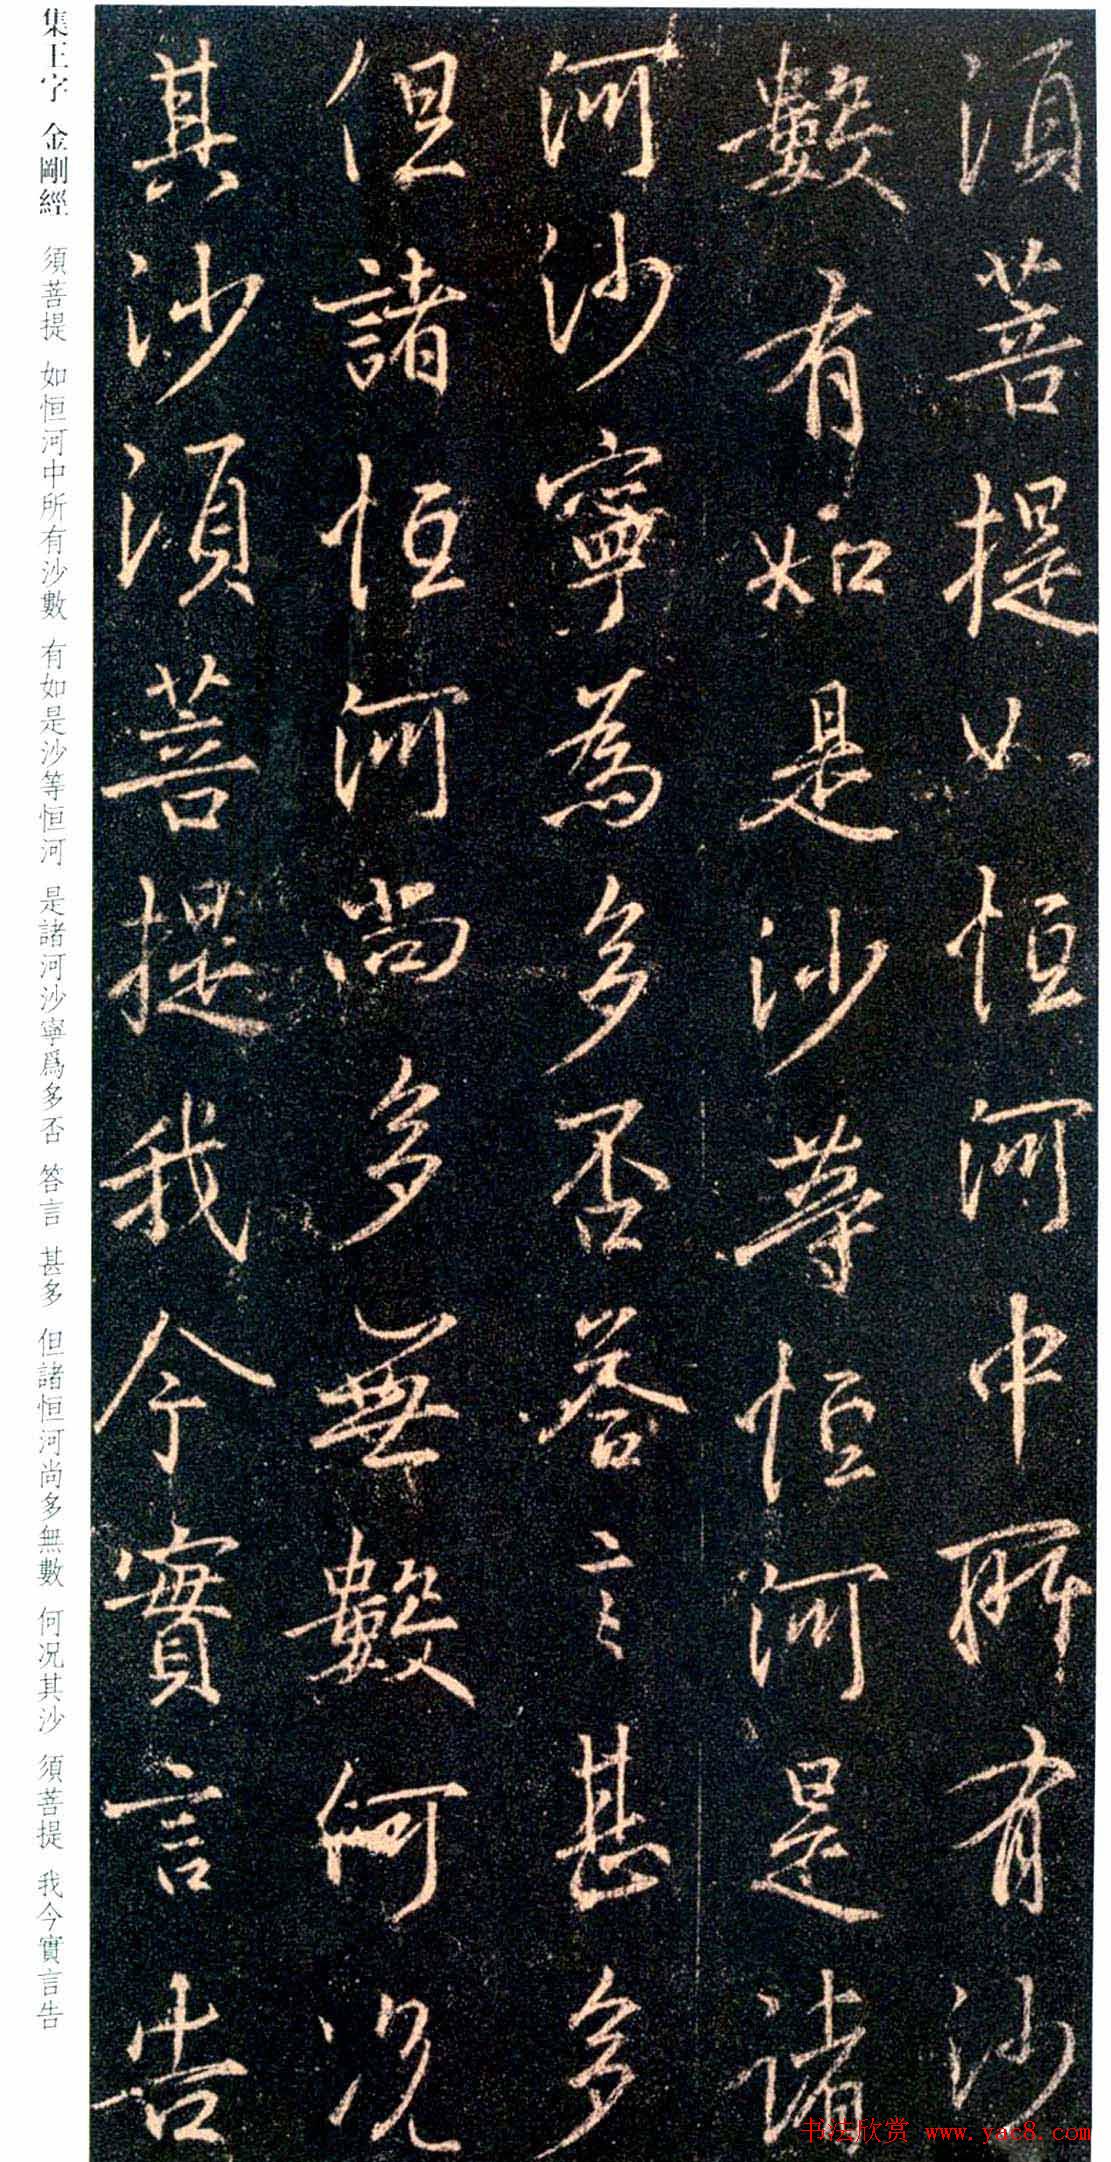 須菩提如恒河中所有沙
數有如是沙等恒河是諸
河沙寧為多多否答言甚多
但諸恒河尚多無數何況
其沙須菩提我今實言告
集王字 金剛經 須菩提 如恒河中所有沙數 有如是沙等恒河 是諸河沙寧爲多否 答言 甚多 但諸恒河尚多無數 何况其沙 須菩提 我今實言告
书法欣赏 www.yac8.com